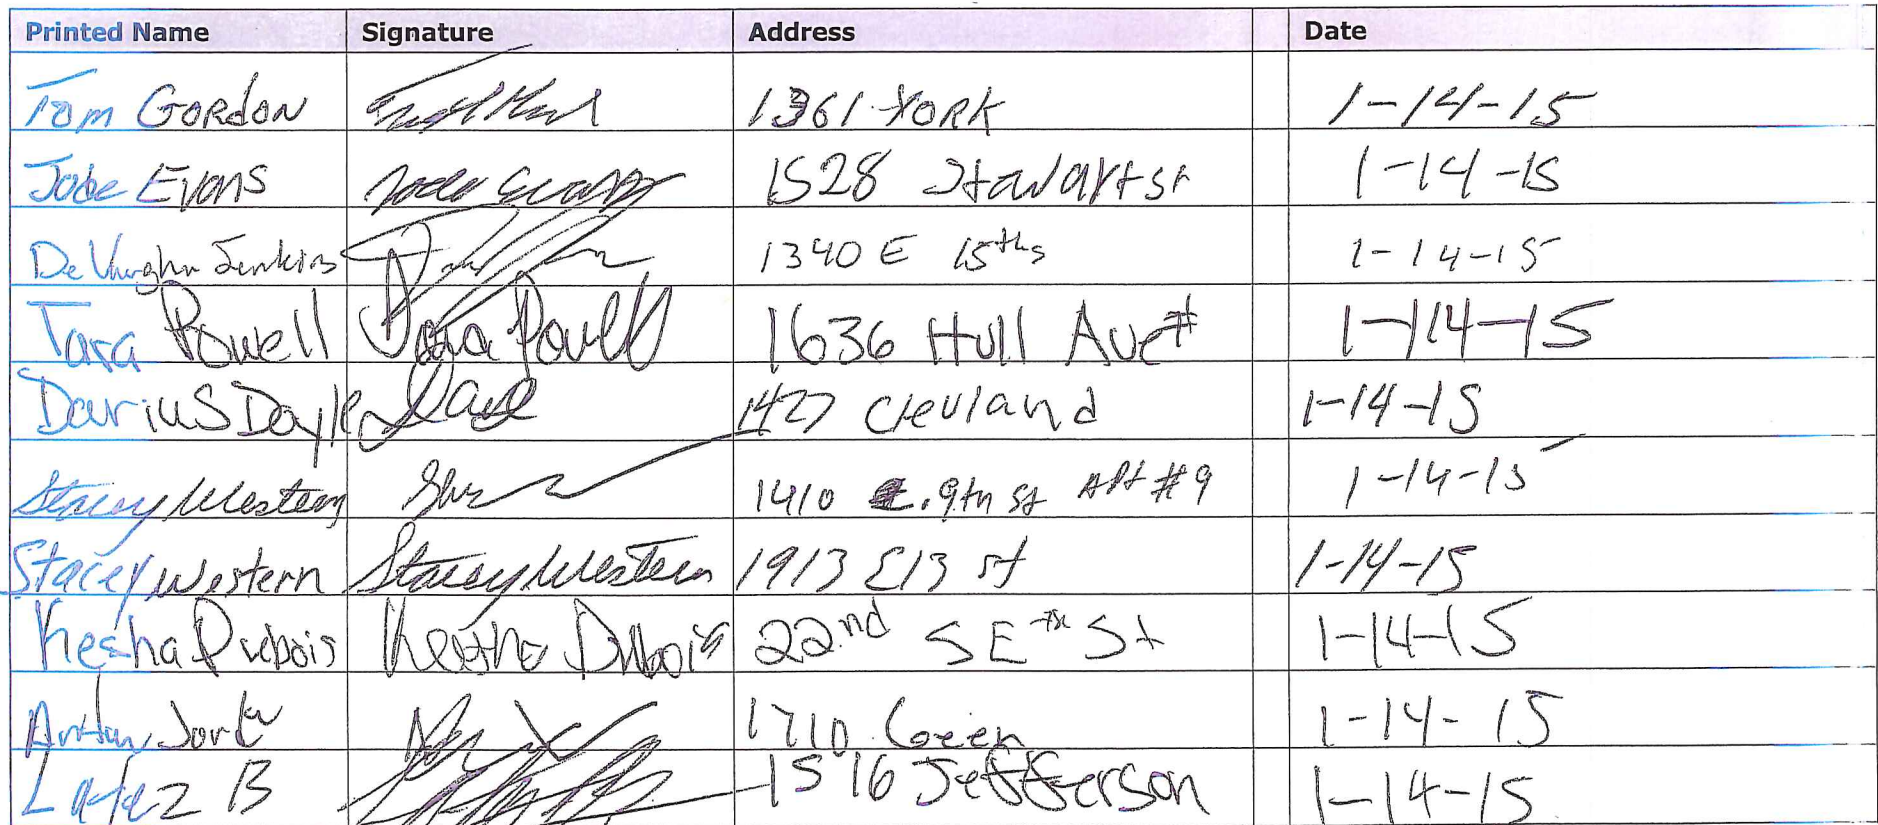 Printed Name Signature Address Date
Tom GORDON 1361 YORK 1-14-15
Jobe Evans Evans 1528 Stewart st 1-14-15
DeVaughn Jenkins 1340 E 15ths 1-14-15
Tara Powell Tara Powell 1636 Hull Ave# 1-14-15
Darius Dayle 1427 clevland 1-14-15
Stacey Western 1410 E. 9th St Apt #9 1-14-15
Stacey Western Stacey Western 1913 E13 st 1-14-15
Kesha Dubois Kesha Dubois 22nd S E St 1-14-15
1710 Green 1-14-15
B 1516 Jefferson 1-14-15